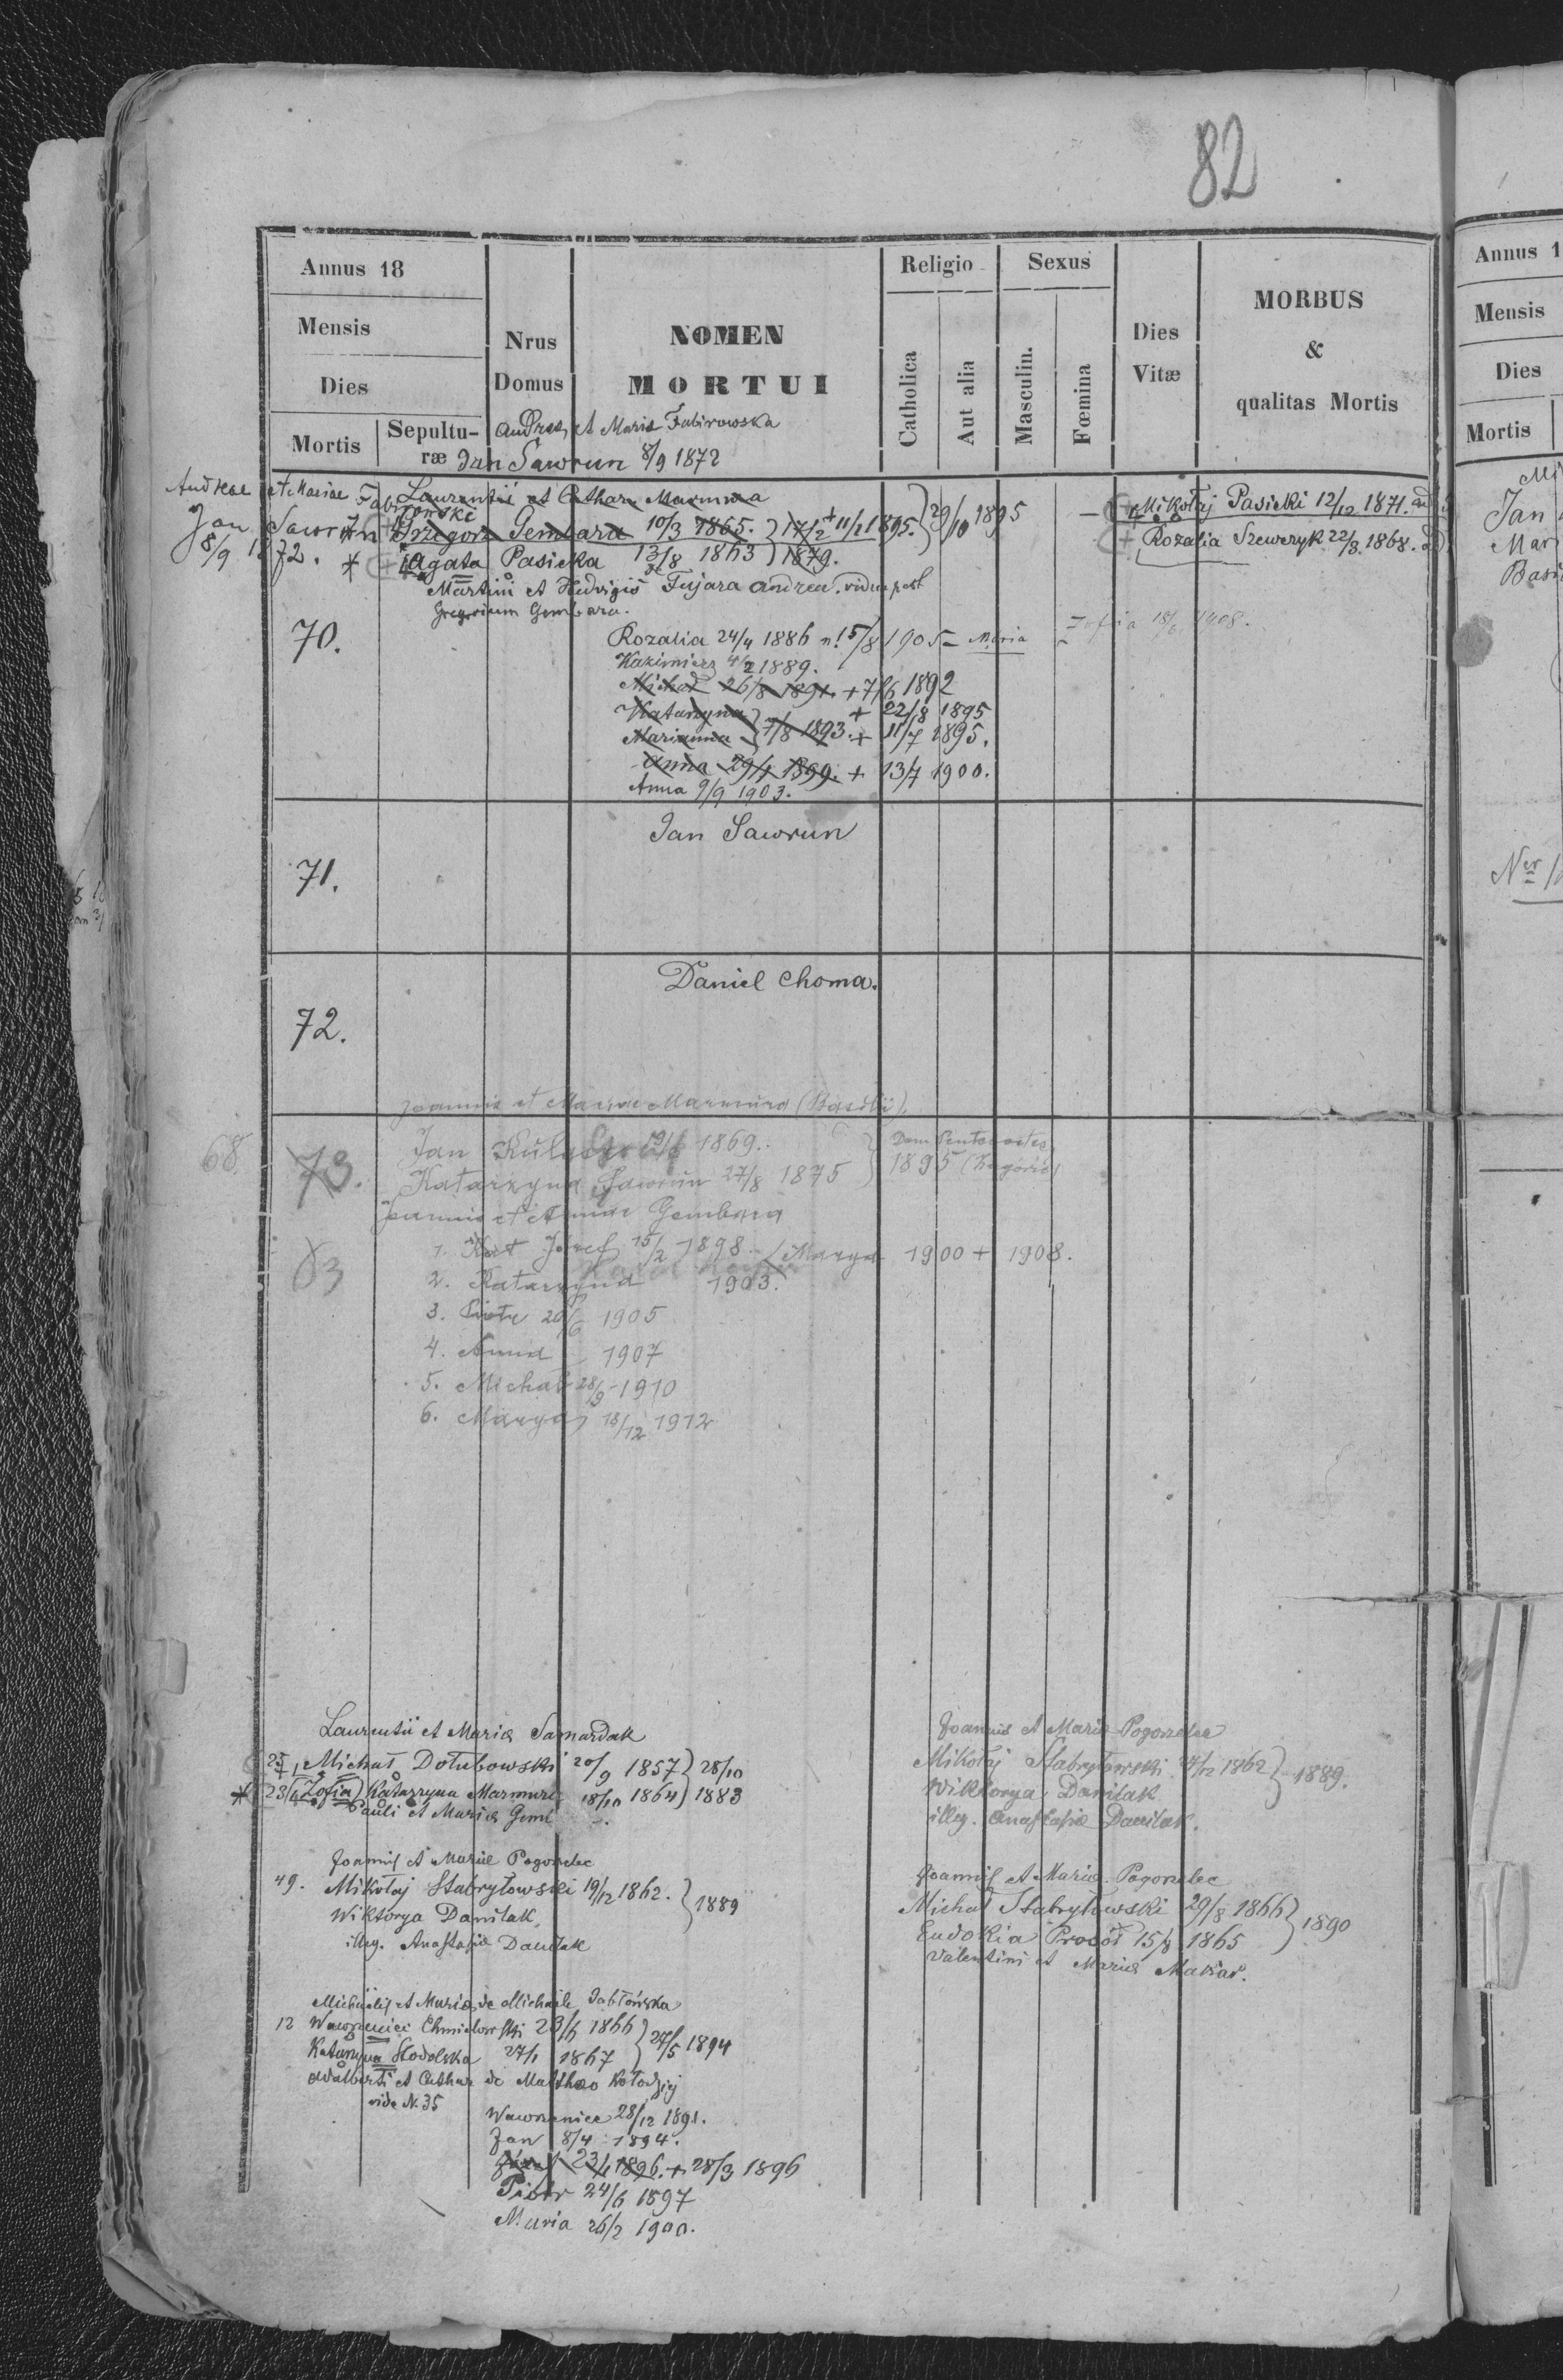 82
Annus 18
Mensis
Dies
Mortis
Sepulturæ
Nrus
Domus
NOMEN
MORTUI
Religio
Catholica
Aut alia
Sexus
Masculin.
Fœmina
Dies
Vitæ
MORBUS
&
qualitas Mortis
Andreas et Maria Fabirowska
Jan Sawrun 8/9 1872
Andreae et Mariae Fabirowski
Jan Sawrun
8/9 1872.
Laurentii et Cathar Marmura
Grzegorz Gembara 10/3 1865. } 17/2 + 11/2 1895. } 29/10 1895
Agata Pasicka 13/8 1863 ) 1879.
Martini et Hedvigis Fujara Andrea. vidua post
Gregorium Gembara.
Mikołaj Pasicki 12/12 1871.
Rozalia Szeweryk 22/8 1868.
70.
Rozalia 24/4 1886 n! 5/8 1905 = Maria
Kazimierz 4/2 1889.
Michał 26/8 1891. + 7/6 1892
Katarzyna } 7/8 1893. + 22/8 1895
Marianna + 11/7 1895.
Anna 29/4 1899. + 13/7 1900.
Anna 9/9 1903.
71.
Jan Sawrun
72.
Daniel Choma.
Joannis et Mariae Marmura (Basilii)
68.
73.
Jan 1869.
Katarzyna Sawrun 27/8 1875 }
1895
Joannis et Annae Gembara
63
1. Józef 15/2 1898. Marya 1900 + 1908.
2. Katarzyna 1903.
3. Piotr 29/6 1905
4. Anna 1907
5. Michał 28/9 1910
6. Marya 18/12 1912
Laurentii et Mariæ Samardak
Michał Dołubowski 20/9 1857 } 28/10
23/4 (Zofia) Katarzyna Marmura 18/10 1864 ) 1883
Pauli et Mariæ
Joannis et Mariæ Pogorzelec
Mikołaj Stabryłowski 19/12 1862 } 1889.
Wiktorya Daniłak
illeg. Anastasiæ Daniłak.
Joannis et Mariæ Pogorzelec
49. Mikołaj Stabryłowski 19/12 1862. } 1889
Wiktorya Daniłak,
illeg. Anastasiæ Daniłak
Joannis et Mariæ Pogorzelec
Michał Stabryłowski 29/8 1866 } 1890
Eudokia 15/8 1865
Valentini et Mariæ Makar.
Michaelis et Mariæ de Michaele Jabłońska
12 Wawrzeniec Chmielowski 23/6 1866 } 27/5 1894
Katarzyna Stodolska 27/1 1867
Adalberti et Cathar de Matthæo Kołodziej
vide N. 35
Wawrzeniec 28/12 1891.
Jan 8/4 1894.
Józef 23/1 1896. + 28/3 1896
Piotr 24/6 1897
Maria 26/2 1900.
Annus 1
Mensis
Dies
Mortis
Jan